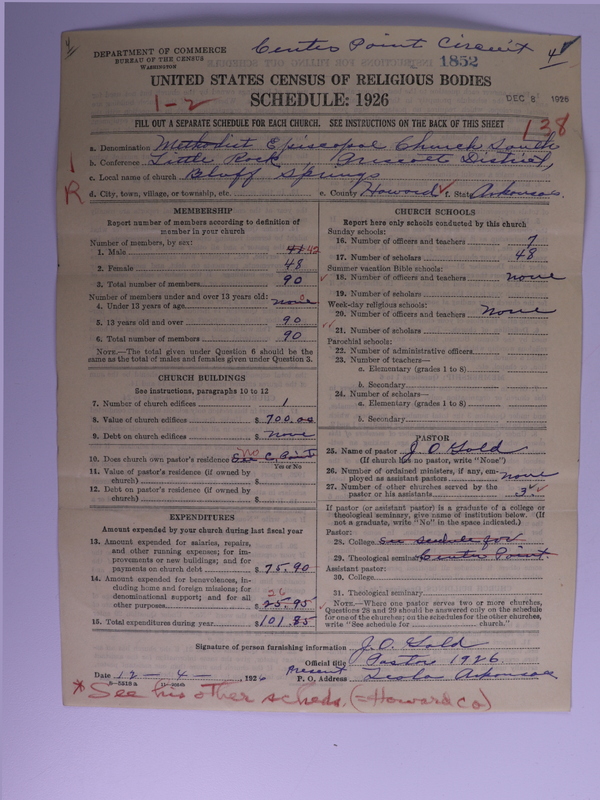 Center Point Circuit
4
DEPARTMENT OF COMMERCE
BUREAU OF THE CENSUS
WASHINGTON
1852
UNITED STATES CENSUS OF RELIGIOUS BODIES
1-2
SCHEDULE: 1926
DEC 8 1926
FILL OUT A SEPARATE SCHEDULE FOR EACH CHURCH. SEE INSTRUCTIONS ON THE BACK OF THIS SHEET
138
a. Denomination Methodist Episcopal Church South
b. Conference Little Rock Prescott District,
c. Local name of church Bluff Springs
R
d. City, town, village, or township, etc. e. County Howard f. State Arkansas.
MEMBERSHIP
Report number of members according to definition of
member in your church
Number of members, by sex:
1. Male 42
2. Female 48
3. Total number of members 90
Number of members under and over 13 years old:
4. Under 13 years of age none
5. 13 years old and over 90
6. Total number of members 90
NOTE.—The total given under Question 6 should be the
same as the total of males and females given under Question 3.
CHURCH BUILDINGS
See instructions, paragraphs 10 to 12
7. Number of church edifices 1
8. Value of church edifices $ 700.00
9. Debt on church edifices $ none
10. Does church own pastor's residence no C. Point
Yes or No
11. Value of pastor's residence (if owned by
church) $
12. Debt on pastor's residence (if owned by
church) $
EXPENDITURES
Amount expended by your church during last fiscal year
13. Amount expended for salaries, repairs,
and other running expenses; for im-
provements or new buildings; and for
payments on church debt $ 75.90
14. Amount expended for benevolences, in-
cluding home and foreign missions; for
denominational support; and for all
other purposes 26
$ 25.95
15. Total expenditures during year $ 101.85
CHURCH SCHOOLS
Report here only schools conducted by this church
Sunday schools:
16. Number of officers and teachers 7
17. Number of scholars 48
Summer vacation Bible schools:
18. Number of officers and teachers none
19. Number of scholars
Week-day religious schools:
20. Number of officers and teachers none
21. Number of scholars
Parochial schools:
22. Number of administrative officers
23. Number of teachers—
a. Elementary (grades 1 to 8)
b. Secondary
24. Number of scholars—
a. Elementary (grades 1 to 8)
b. Secondary
PASTOR
25. Name of pastor J O Gold
(If church has no pastor, write "None")
26. Number of ordained ministers, if any, em-
ployed as assistant pastors none
27. Number of other churches served by the
pastor or his assistants 3
If pastor (or assistant pastor) is a graduate of a college or
theological seminary, give name of institution below. (If
not a graduate, write "No" in the space indicated.)
Pastor:
28. College See sedule for
29. Theological seminary Center Point.
Assistant pastor:
30. College
31. Theological seminary
NOTE.—Where one pastor serves two or more churches,
Questions 28 and 29 should be answered only on the schedule
for one of the churches; on the schedules for the other churches,
write "See schedule for church."
Signature of person furnishing information J. O. Gold
Official title Pastor 1926
Date 12 - 4 - , 1926 Present P. O. Address Arkansas
* See his other scheds. (= Howard co)